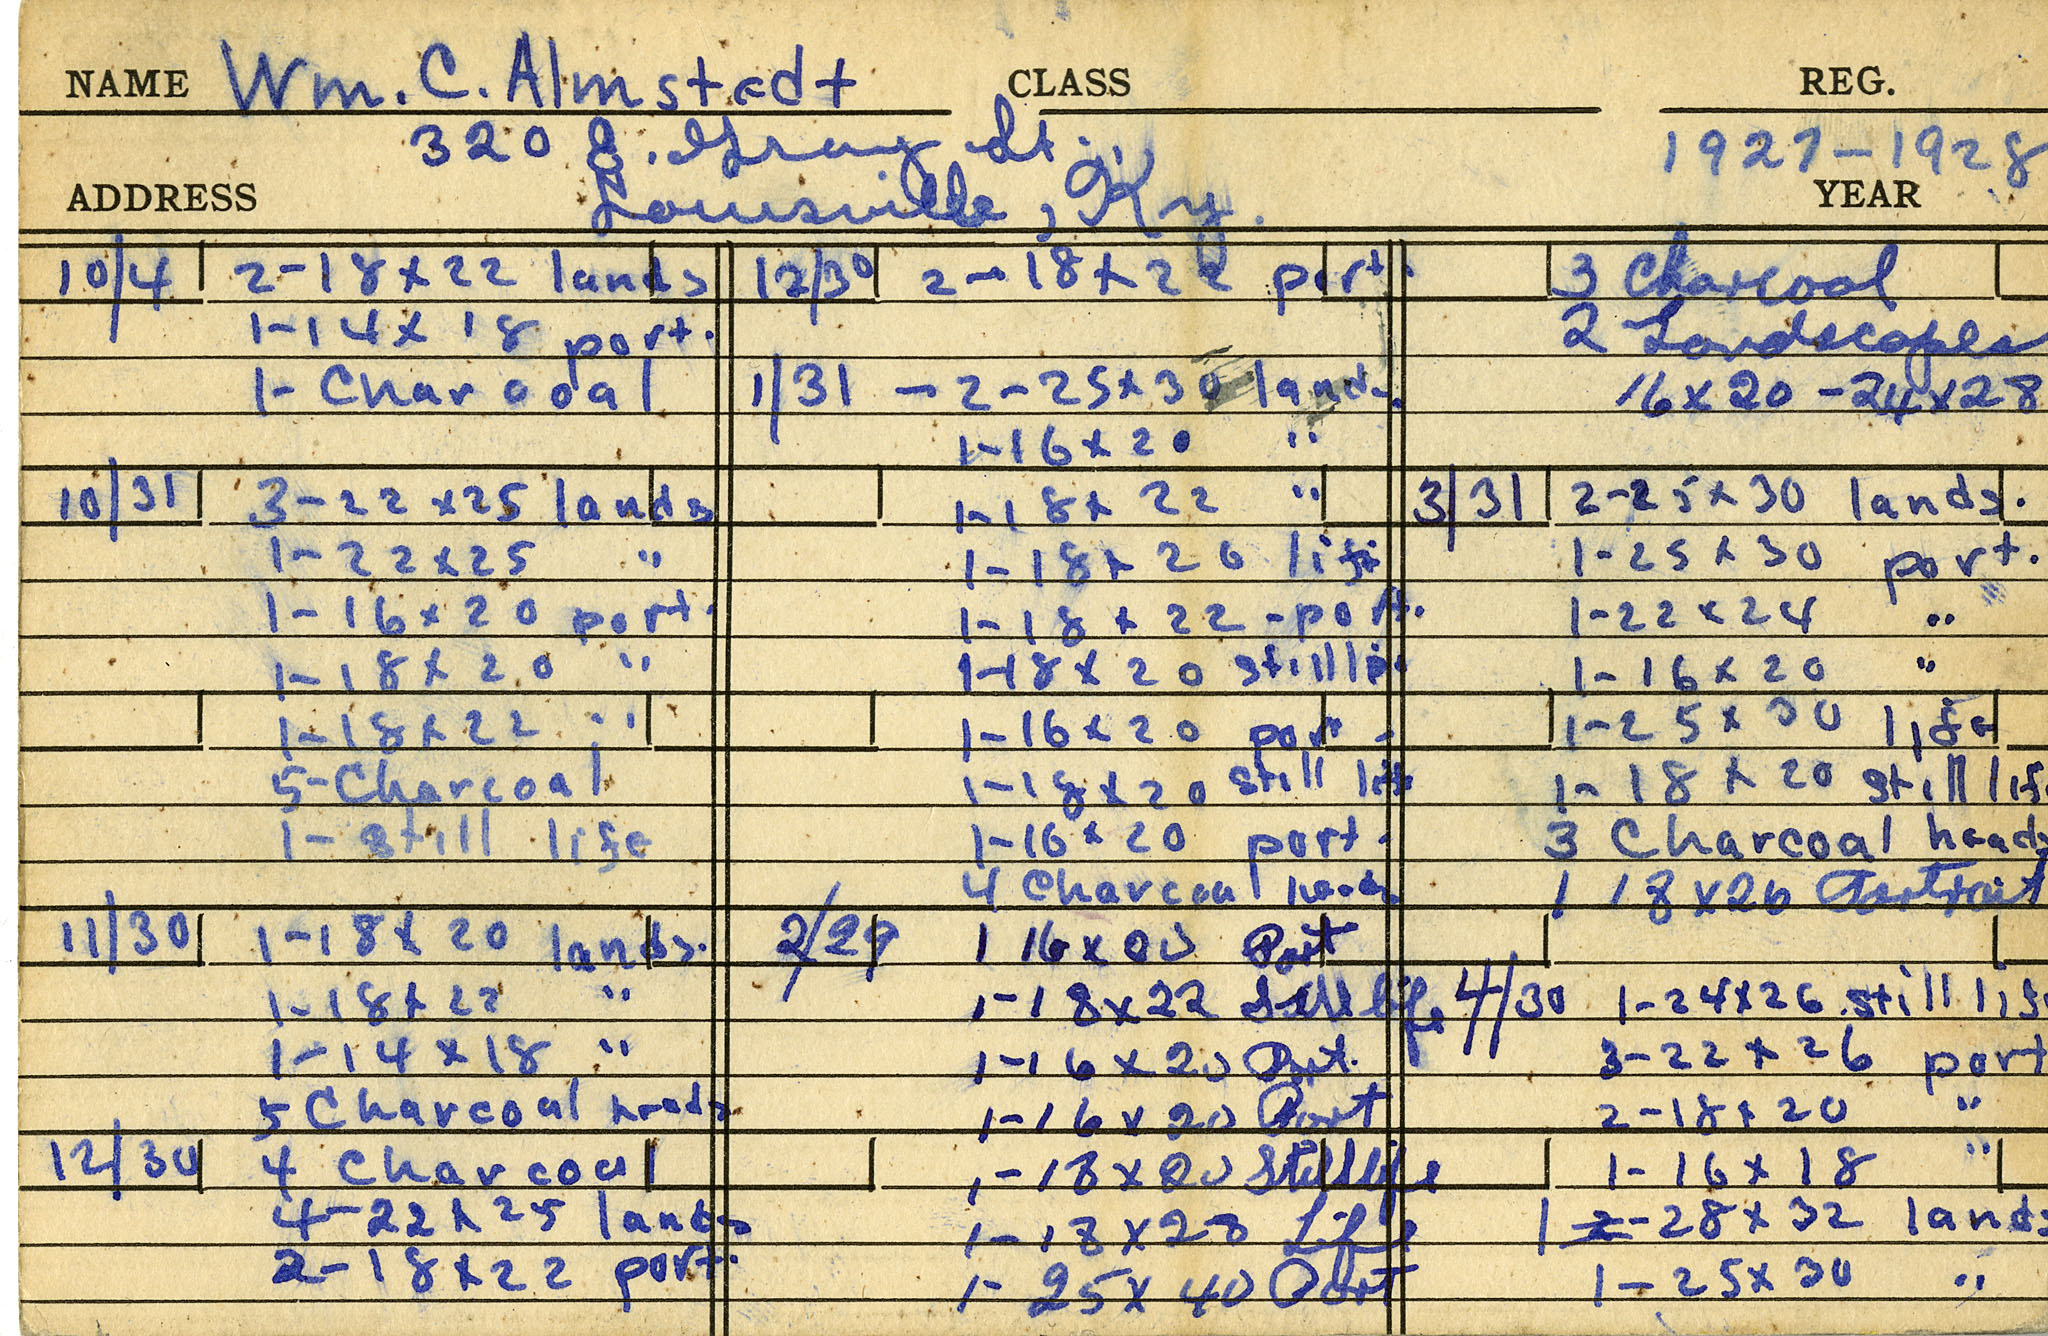 NAME Wm. C. Almstedt CLASS REG.
320 E. Gray St.
1927-1928
ADDRESS Louisville, Ky. YEAR
10/4 2-18x22 lands
1-14x18 port.
1- Charcoal
10/31 3-22x25 lands
1-22x25 "
1-16x20 port.
1-18x20 "
1-18x22 "
5-Charcoal
1- still life
11/30 1-18x20 lands.
1-18x22 "
1-14x18 "
5 Charcoal heads
12/30 4 Charcoal
4-22x25 lands
2-18x22 port.
12/30 2-18x22 port.
1/31 - 2-25x30 lands.
1-16x20 "
1-18x22 "
1-18x26 life
1-18x22-port.
1-18x20 still life
1-16x20 port-
1-18x20 still life
1-16x20 port-
4 Charcoal heads
2/29 1 16x20 Port
1-18x22 Still life
1-16x20 Port.
1-16x20 Port
1-18x20 Still life
1-18x28 Life
1-25x40 Port
3 Charcoal
2 Landscapes
16x20-24x28
3/31 2-25x30 lands.
1-25x30 port.
1-22x24 "
1-16x20 "
1-25x30 life
1-18x20 still life
3 Charcoal heads
1 18x26 Portrait
4/30 1-24x26 still life
3-22x26 port
2-18x20 "
1-16x18 "
1 2-28x32 lands
1-25x30 "